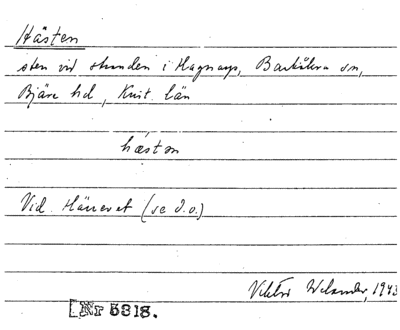 Hästen
sten vid stranden i Magnarp, Barkåkra sn,
Bjäre hd, Krist. län
hæstən
Vid Härrevet (se d.o.)
Viktor Welander, 1943
[Nr 5318.